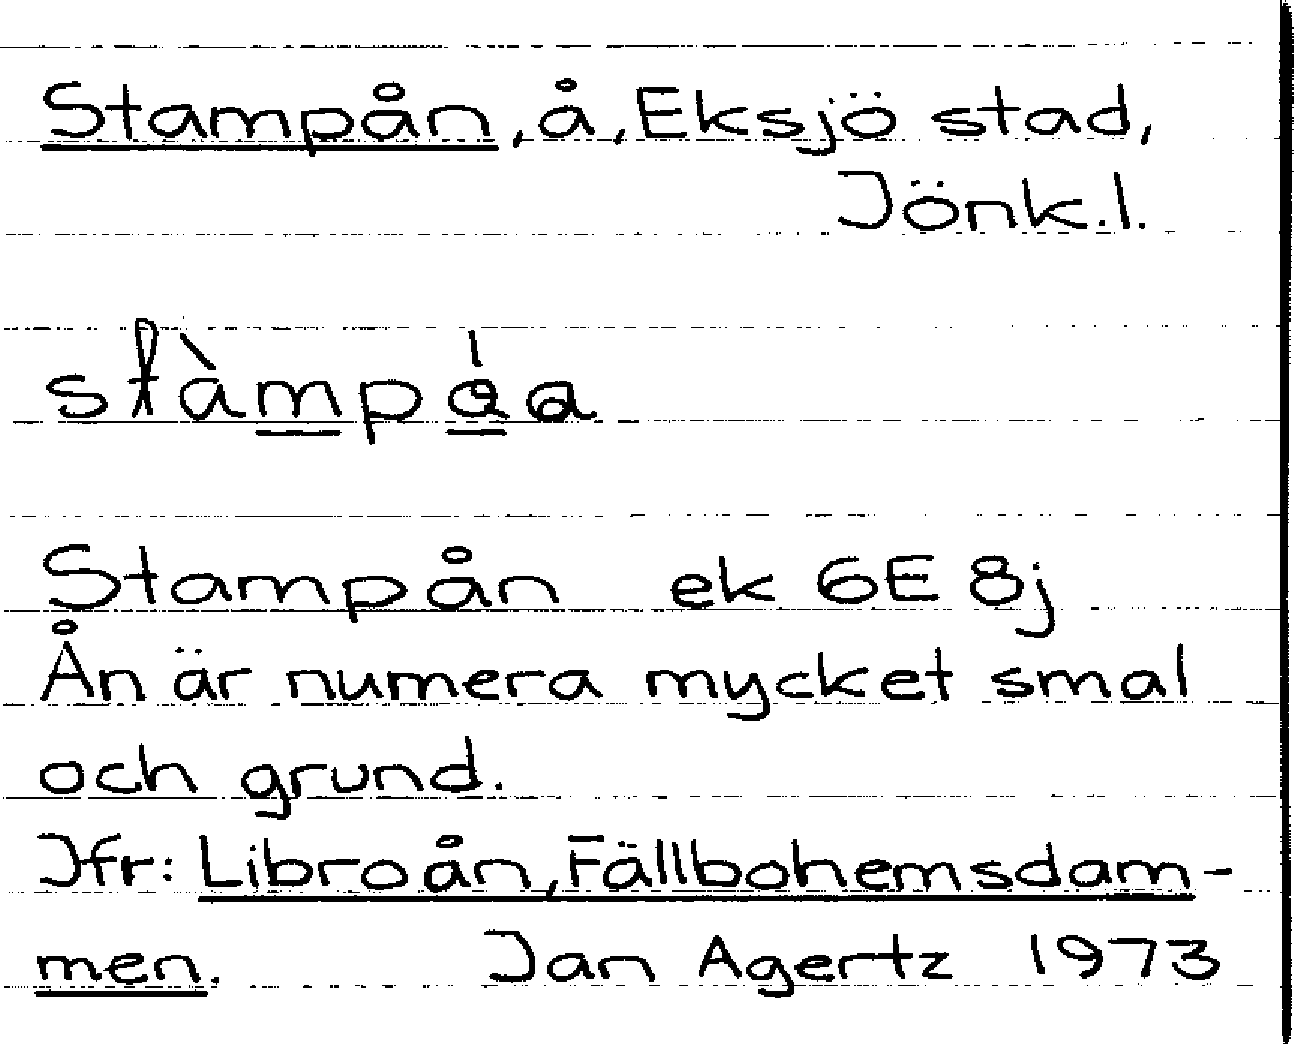 Stampån, å, Eksjö stad,
Jönk.l.
Stampån ek 6E 8j
Ån är numera mycket smal
och grund.
Jfr: Libroån, Fällbohemsdam-
men. Jan Agertz 1973